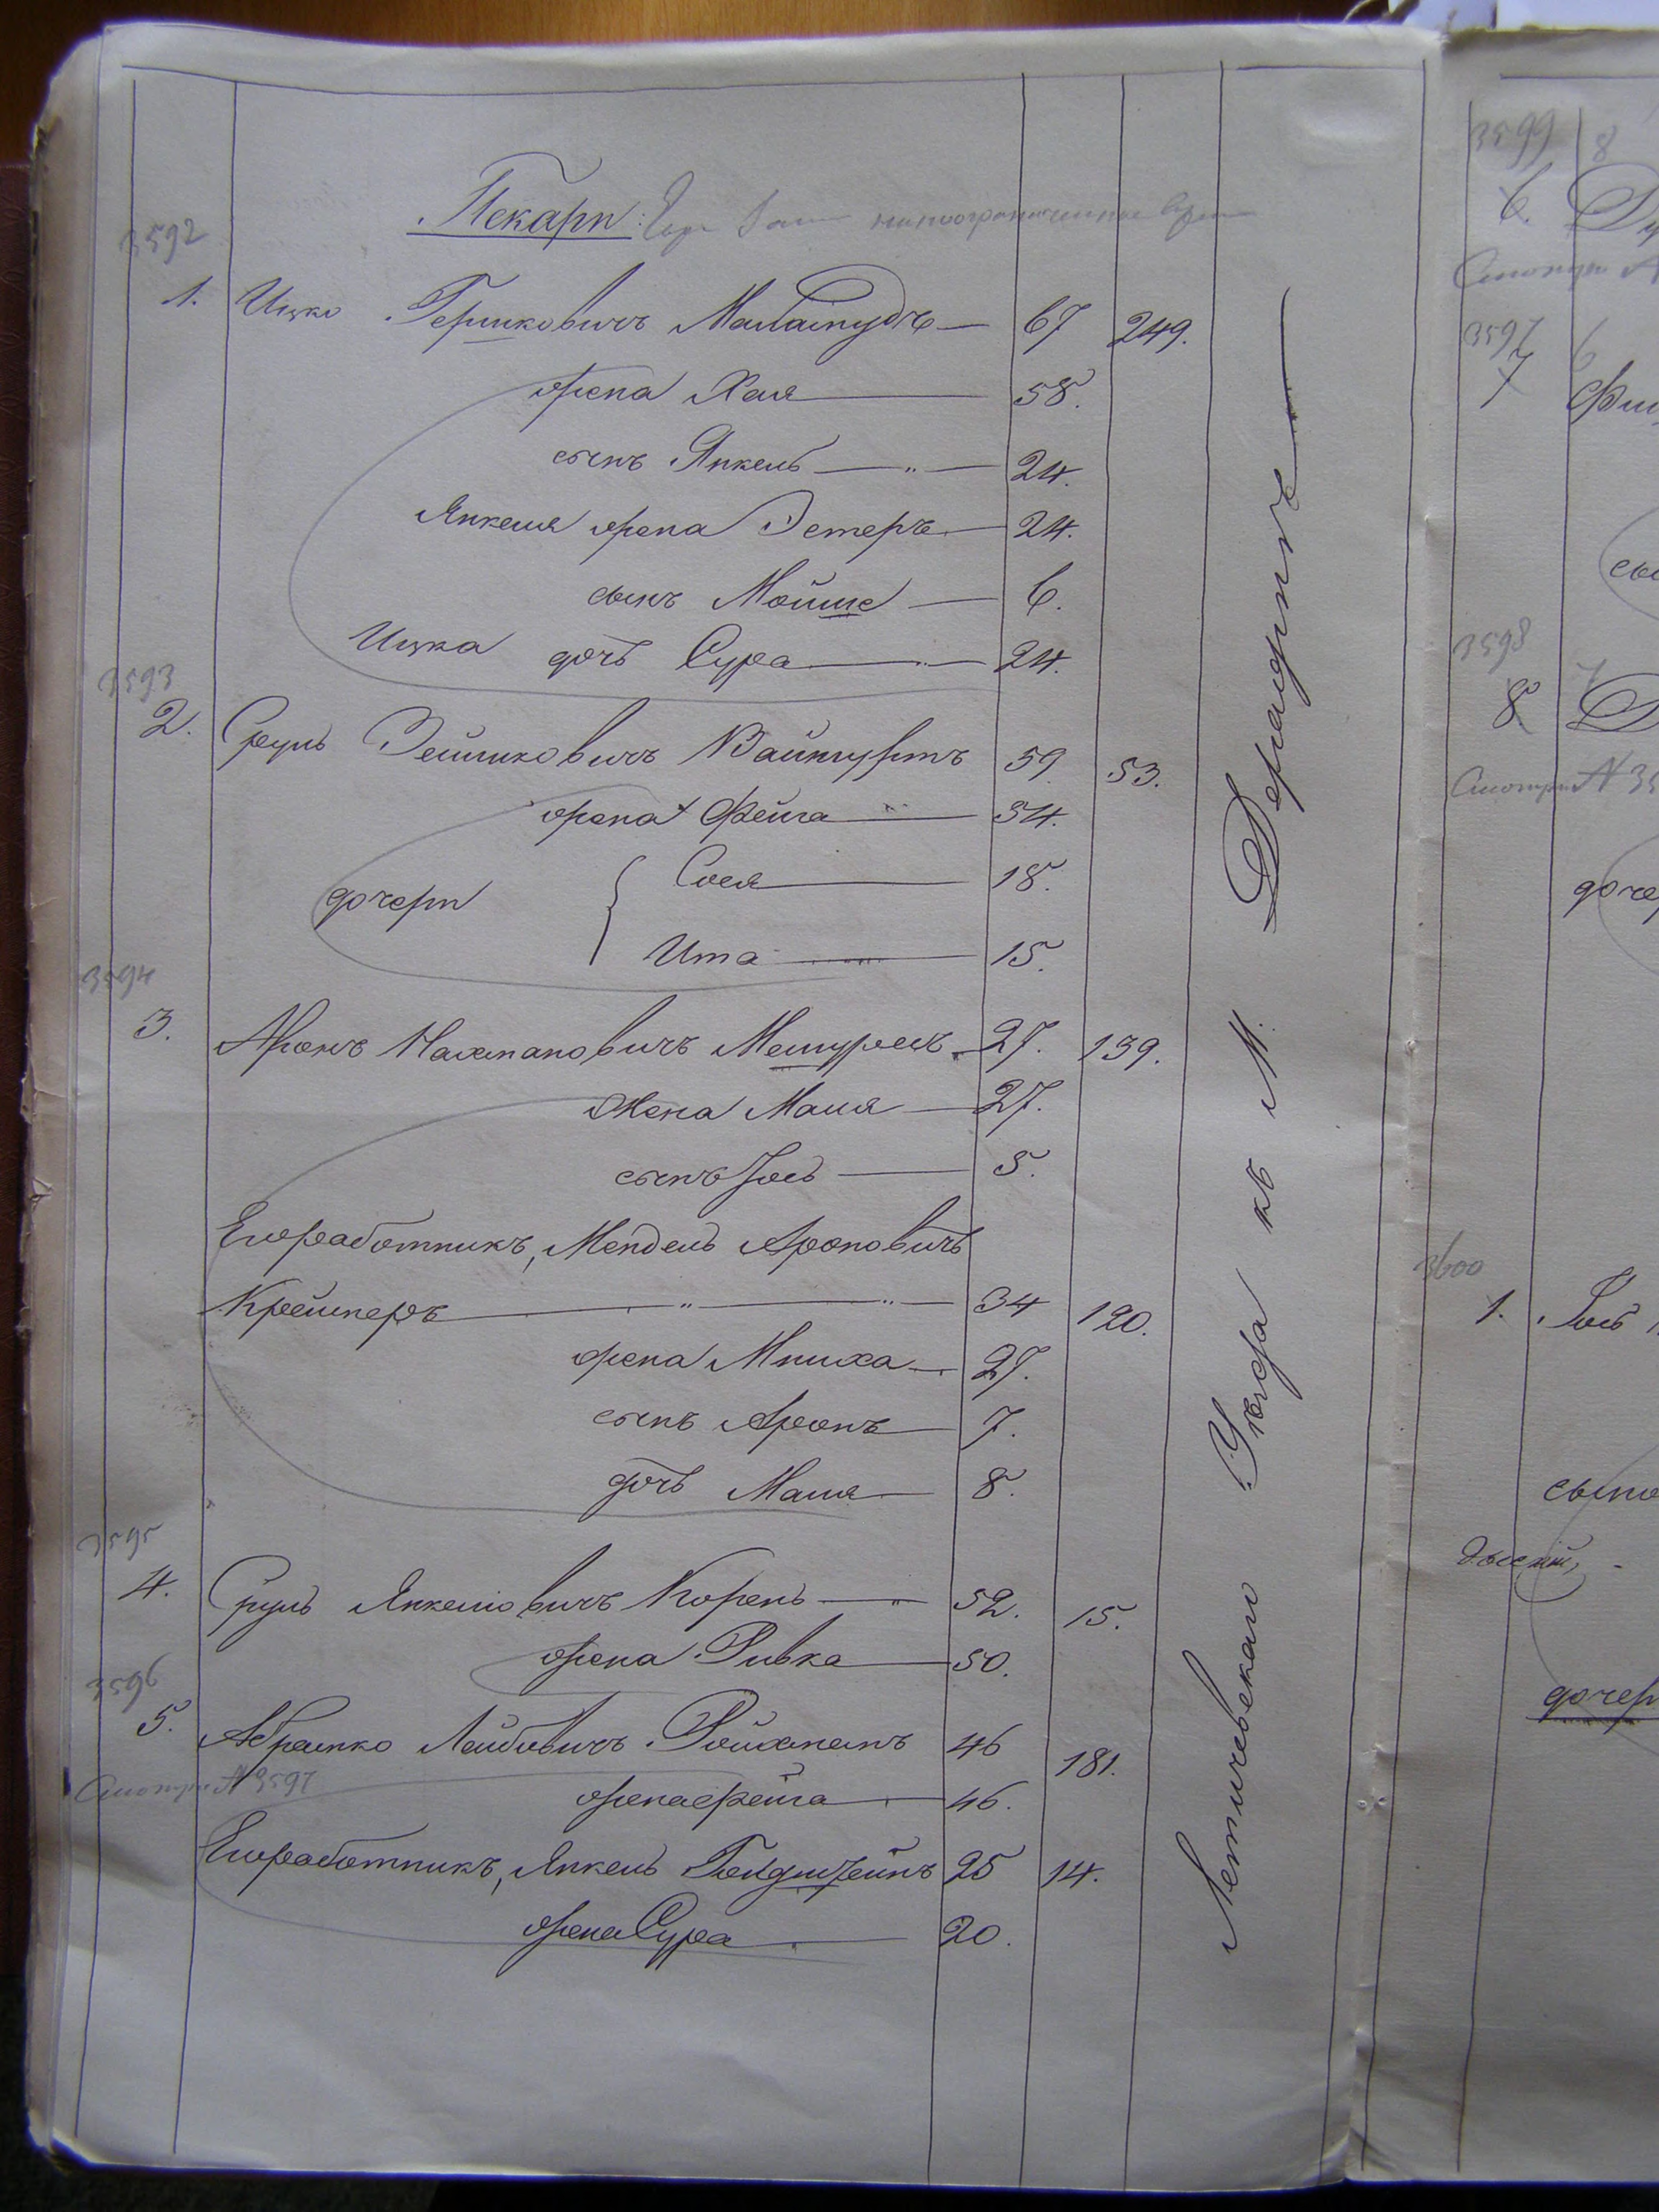 Пекари:
3592
1. Ицко Гершковичъ Маламудъ — 67 249.
жена Хая — 58.
сынъ Янкель — " — 24.
Янкеля жена Эстеръ — 24.
сынъ Мойше — 6.
Ицка дочь Сура — 24.
3593
2. Сруль Зейликовичъ 59. 53.
жена Фейга — 54.
дочери {
Сося — 18.
Ита — 15.
3594
3. Аронъ Нахмановичъ 27. 139.
жена Маля — 27.
сынъ Іось — 5.
Его работникъ, Мендель Ароновичъ
Крейнеръ — " — " — 34 120.
жена 27.
сынъ Аронъ — 7.
дочь Маля — 8.
3595
4. Сруль Янкелiовичъ Корень — " — 52. 15.
жена Ривка — 50.
3596
5. Абрамко Лейбовичъ Ройхманъ 46 181.
Смотри № 3597
жена Фейга — 46.
Его работникъ, Янкель Гольдштейнъ 25 14.
жена Сура — 20.
Летичевскаго Уѣзда къ М. Деражнѣ —
3599 8
6.
Смотри №
3597 6
7
3598 7
8
Смотри № 35
3600
1. Іось